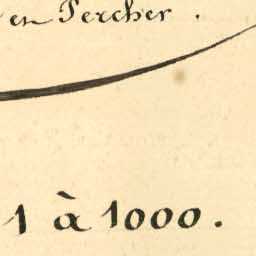 en Percher.
1 à 1000.